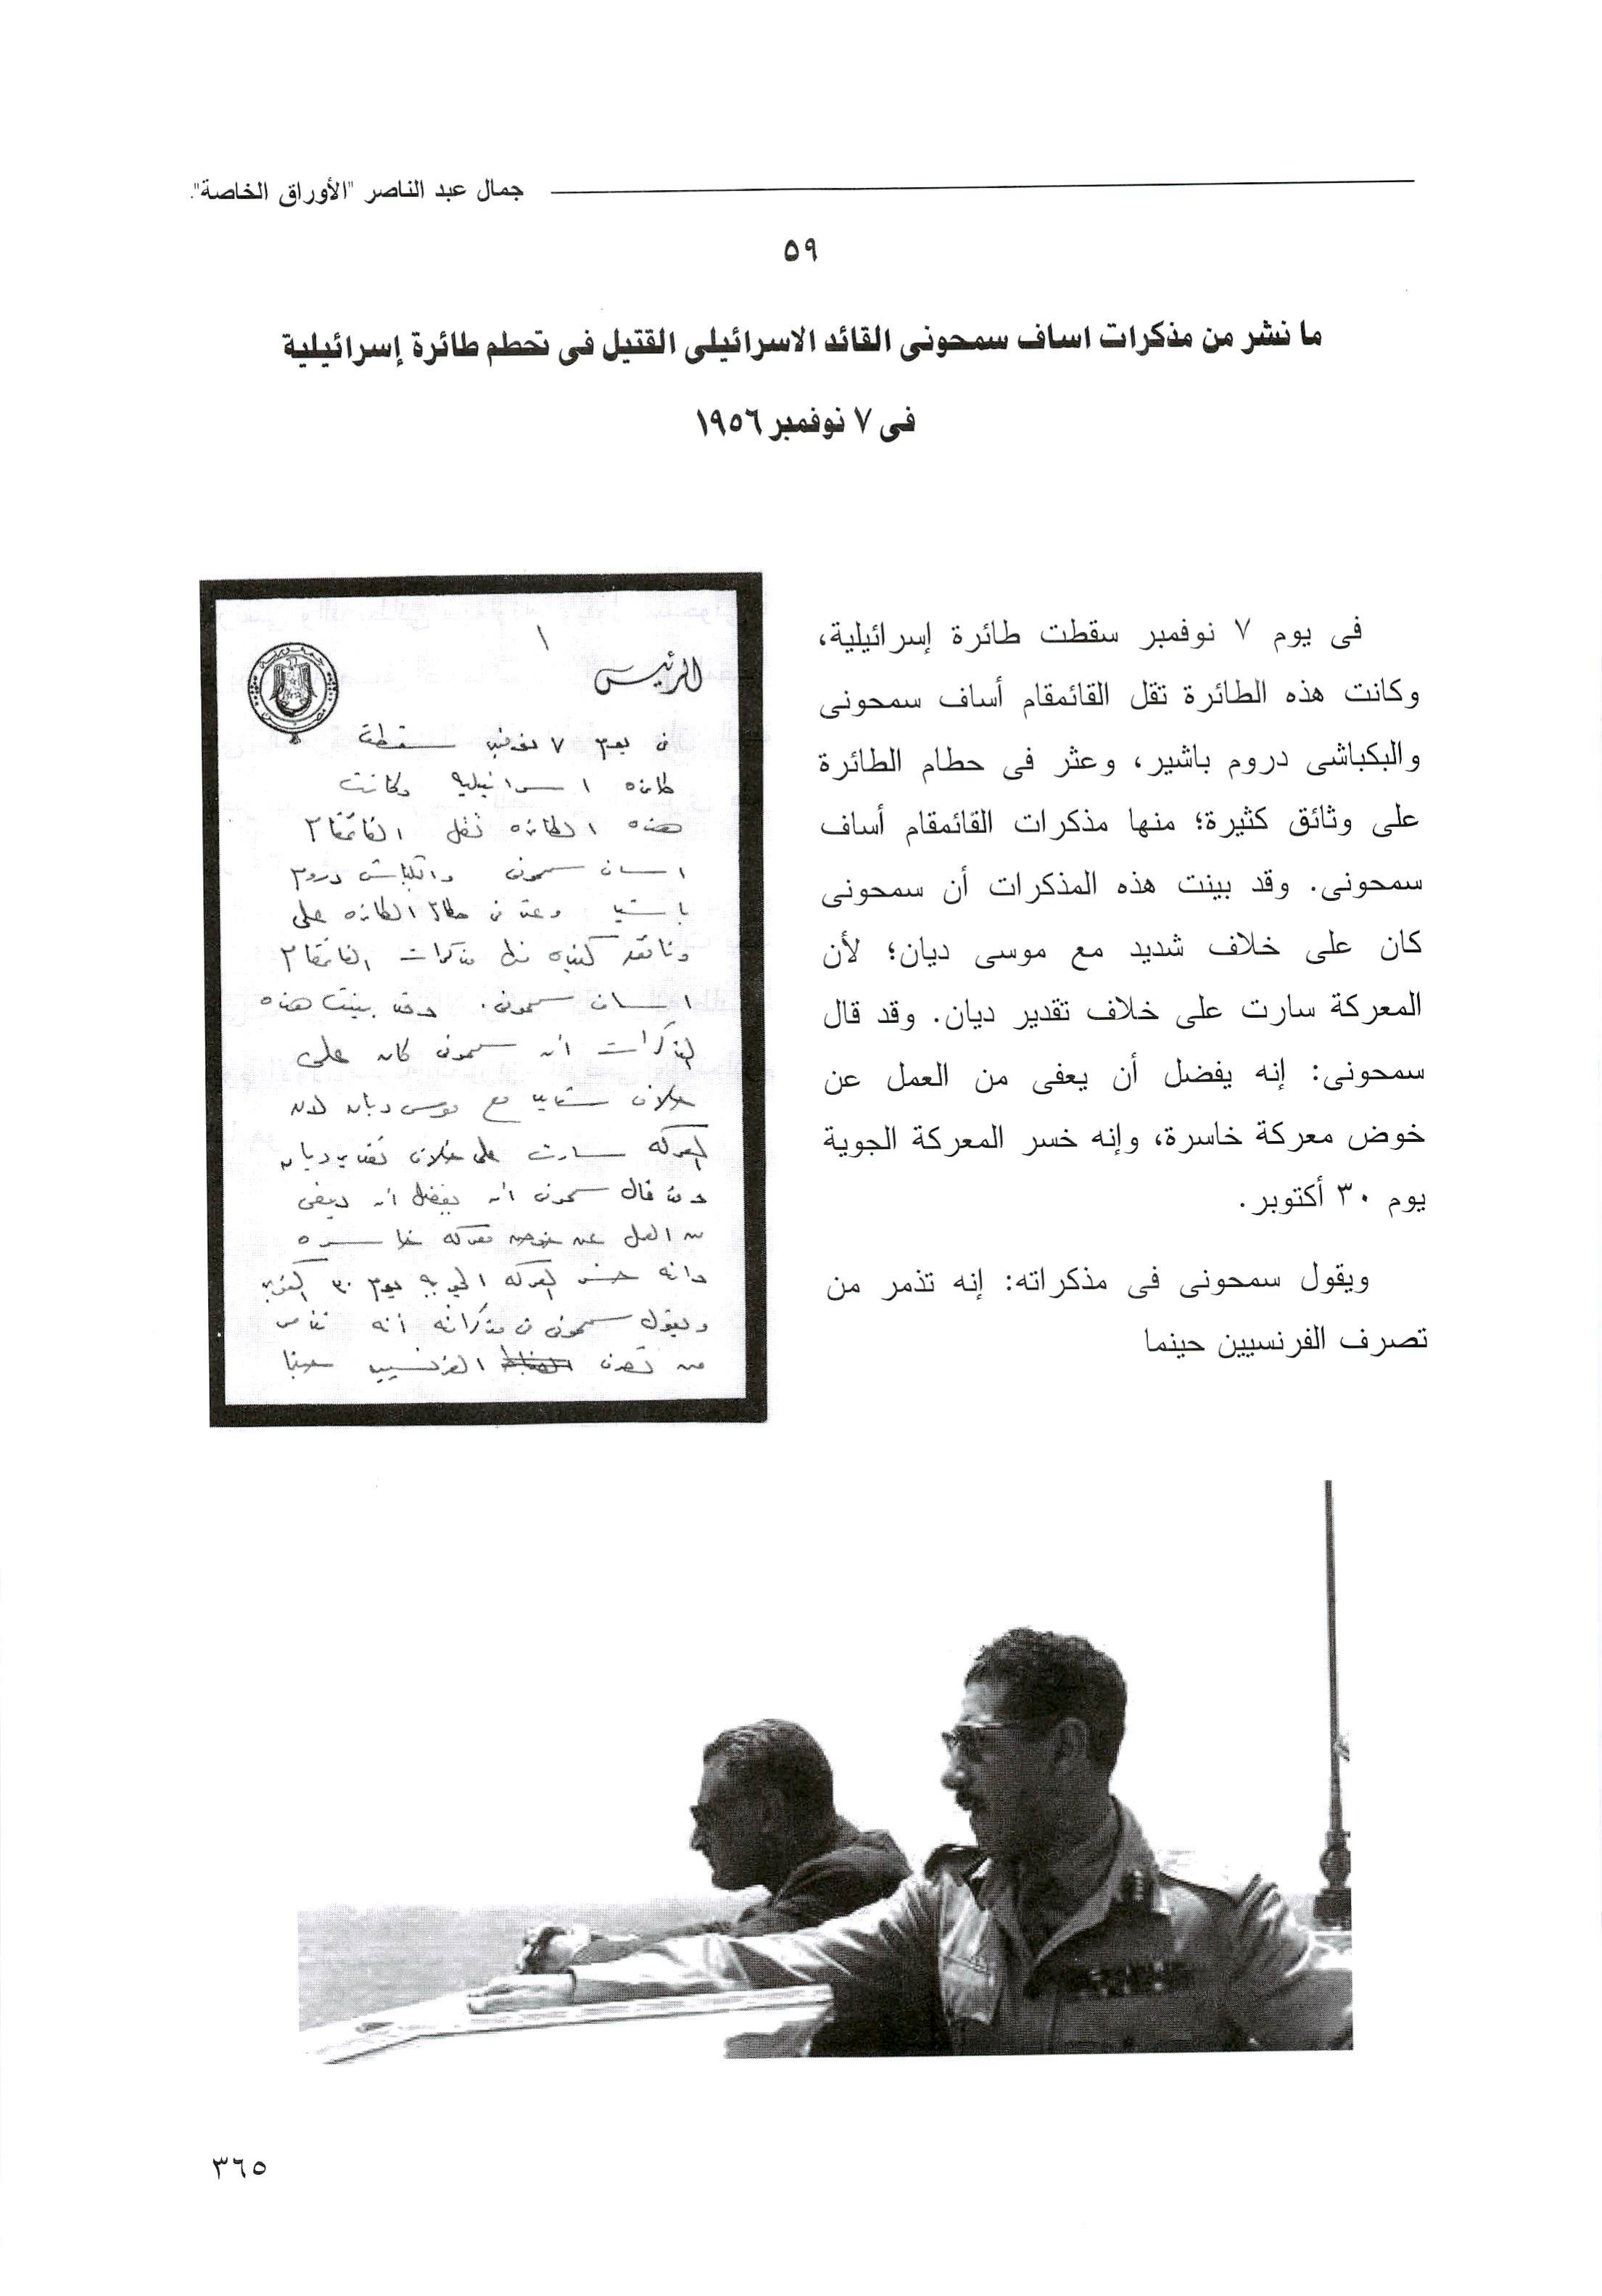 جمال عبد الناصر "الأوراق الخاصة".
٥٩
ما نشر من مذكرات اساف سمحونى القائد الاسرائيلى القتيل فى تحطم طائرة إسرائيلية
فى ٧ نوفمبر ١٩٥٦
فى يوم ٧ نوفمبر سقطت طائرة إسرائيلية،
وكانت هذه الطائرة تقل القائمقام أساف سمحونى
والبكباشى دروم باشير، وعثر فى حطام الطائرة
على وثائق كثيرة؛ منها مذكرات القائمقام أساف
سمحونى. وقد بينت هذه المذكرات أن سمحونى
كان على خلاف شديد مع موسى ديان؛ لأن
المعركة سارت على خلاف تقدير ديان. وقد قال
سمحونى: إنه يفضل أن يعفى من العمل عن
خوض معركة خاسرة، وإنه خسر المعركة الجوية
يوم ٣٠ أكتوبر.
ويقول سمحونى فى مذكراته: إنه تذمر من
تصرف الفرنسيين حينما
١
الرئيس
فى يوم ٧ نوفمبر سقطت
طائره اسرائيليه وكانت
هذه الطائره تقل القائمقام
اساف سمحونى والبكباشى دروم
باشير وعثر فى حطام الطائره على
وثائق كثيره منها مذكرات القائمقام
اساف سمحونى. وقد بينت هذه
المذكرات ان سمحونى كان على
خلاف شديد مع موسى ديان لان
المعركه سارت على خلاف تقدير ديان
وقد قال سمحونى انه يفضل ان يعفى
من العمل عن خوض معركه خاسره
وانه خسر المعركه الجويه يوم ٣٠ اكتوبر
ويقول سمحونى فى مذكراته انه تذمر
من تصرف الفرنسيين حينما
٣٦٥